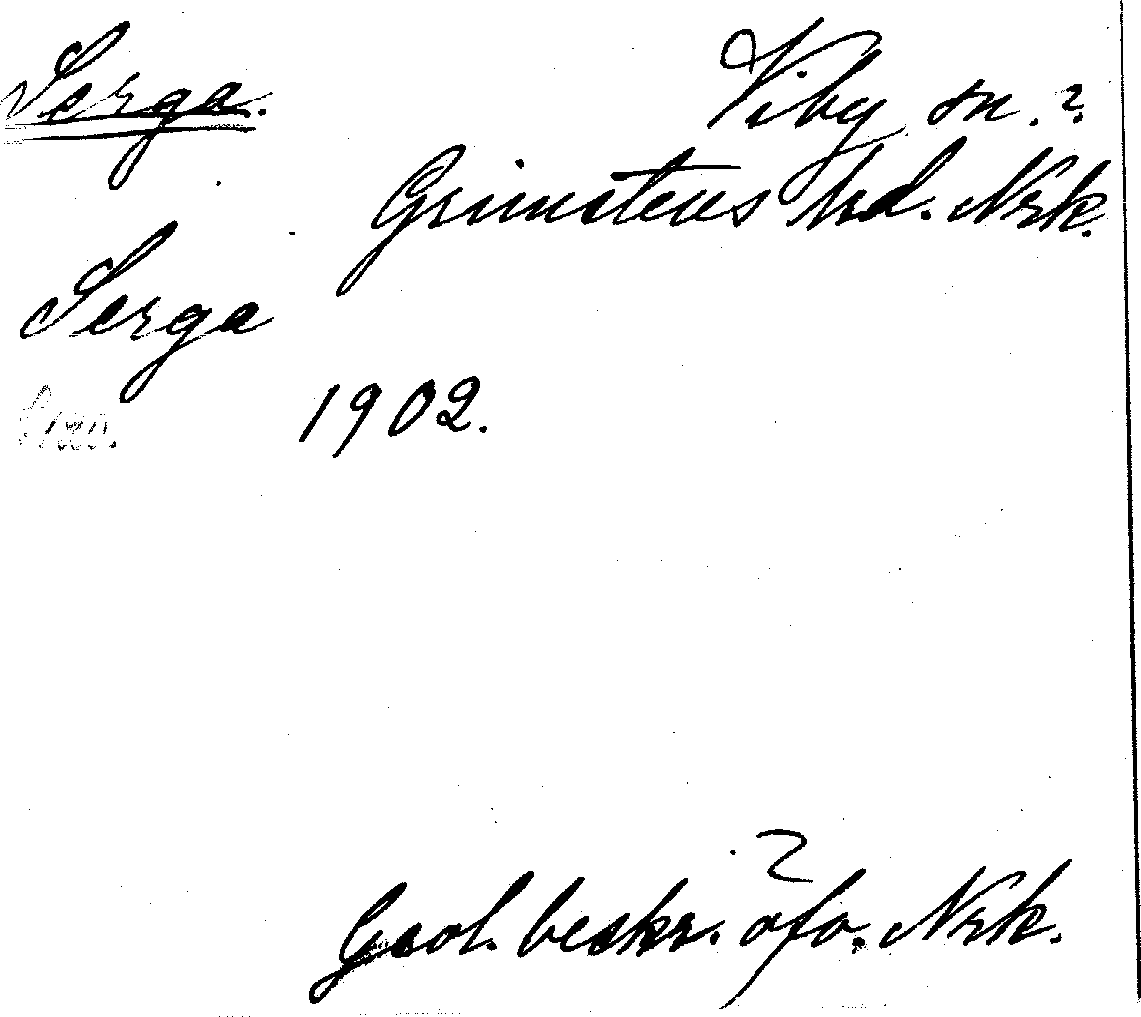 Serga.
Viby sn. ?
Grimstens hd. Nrk.
Serga
1902.
Geol. beskr. öfv. Nrk.